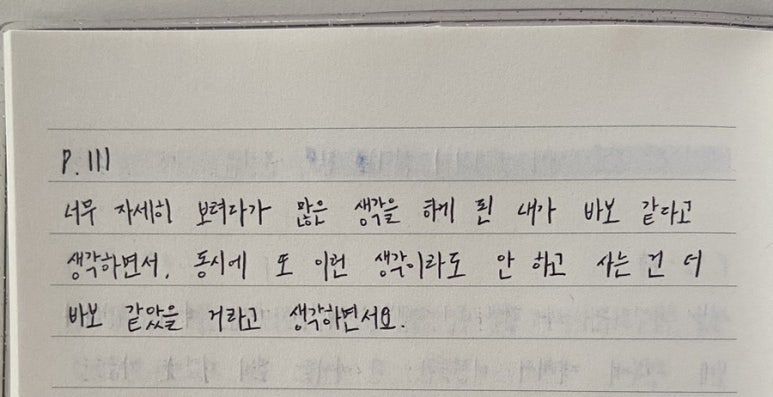 P.111
너무 자세히 보려다가 많은 생각을 하게 된 내가 바보 같다고
생각하면서, 동시에 또 이런 생각이라도 안 하고 사는 건 더
바보 같았을 거라고 생각하면서요.